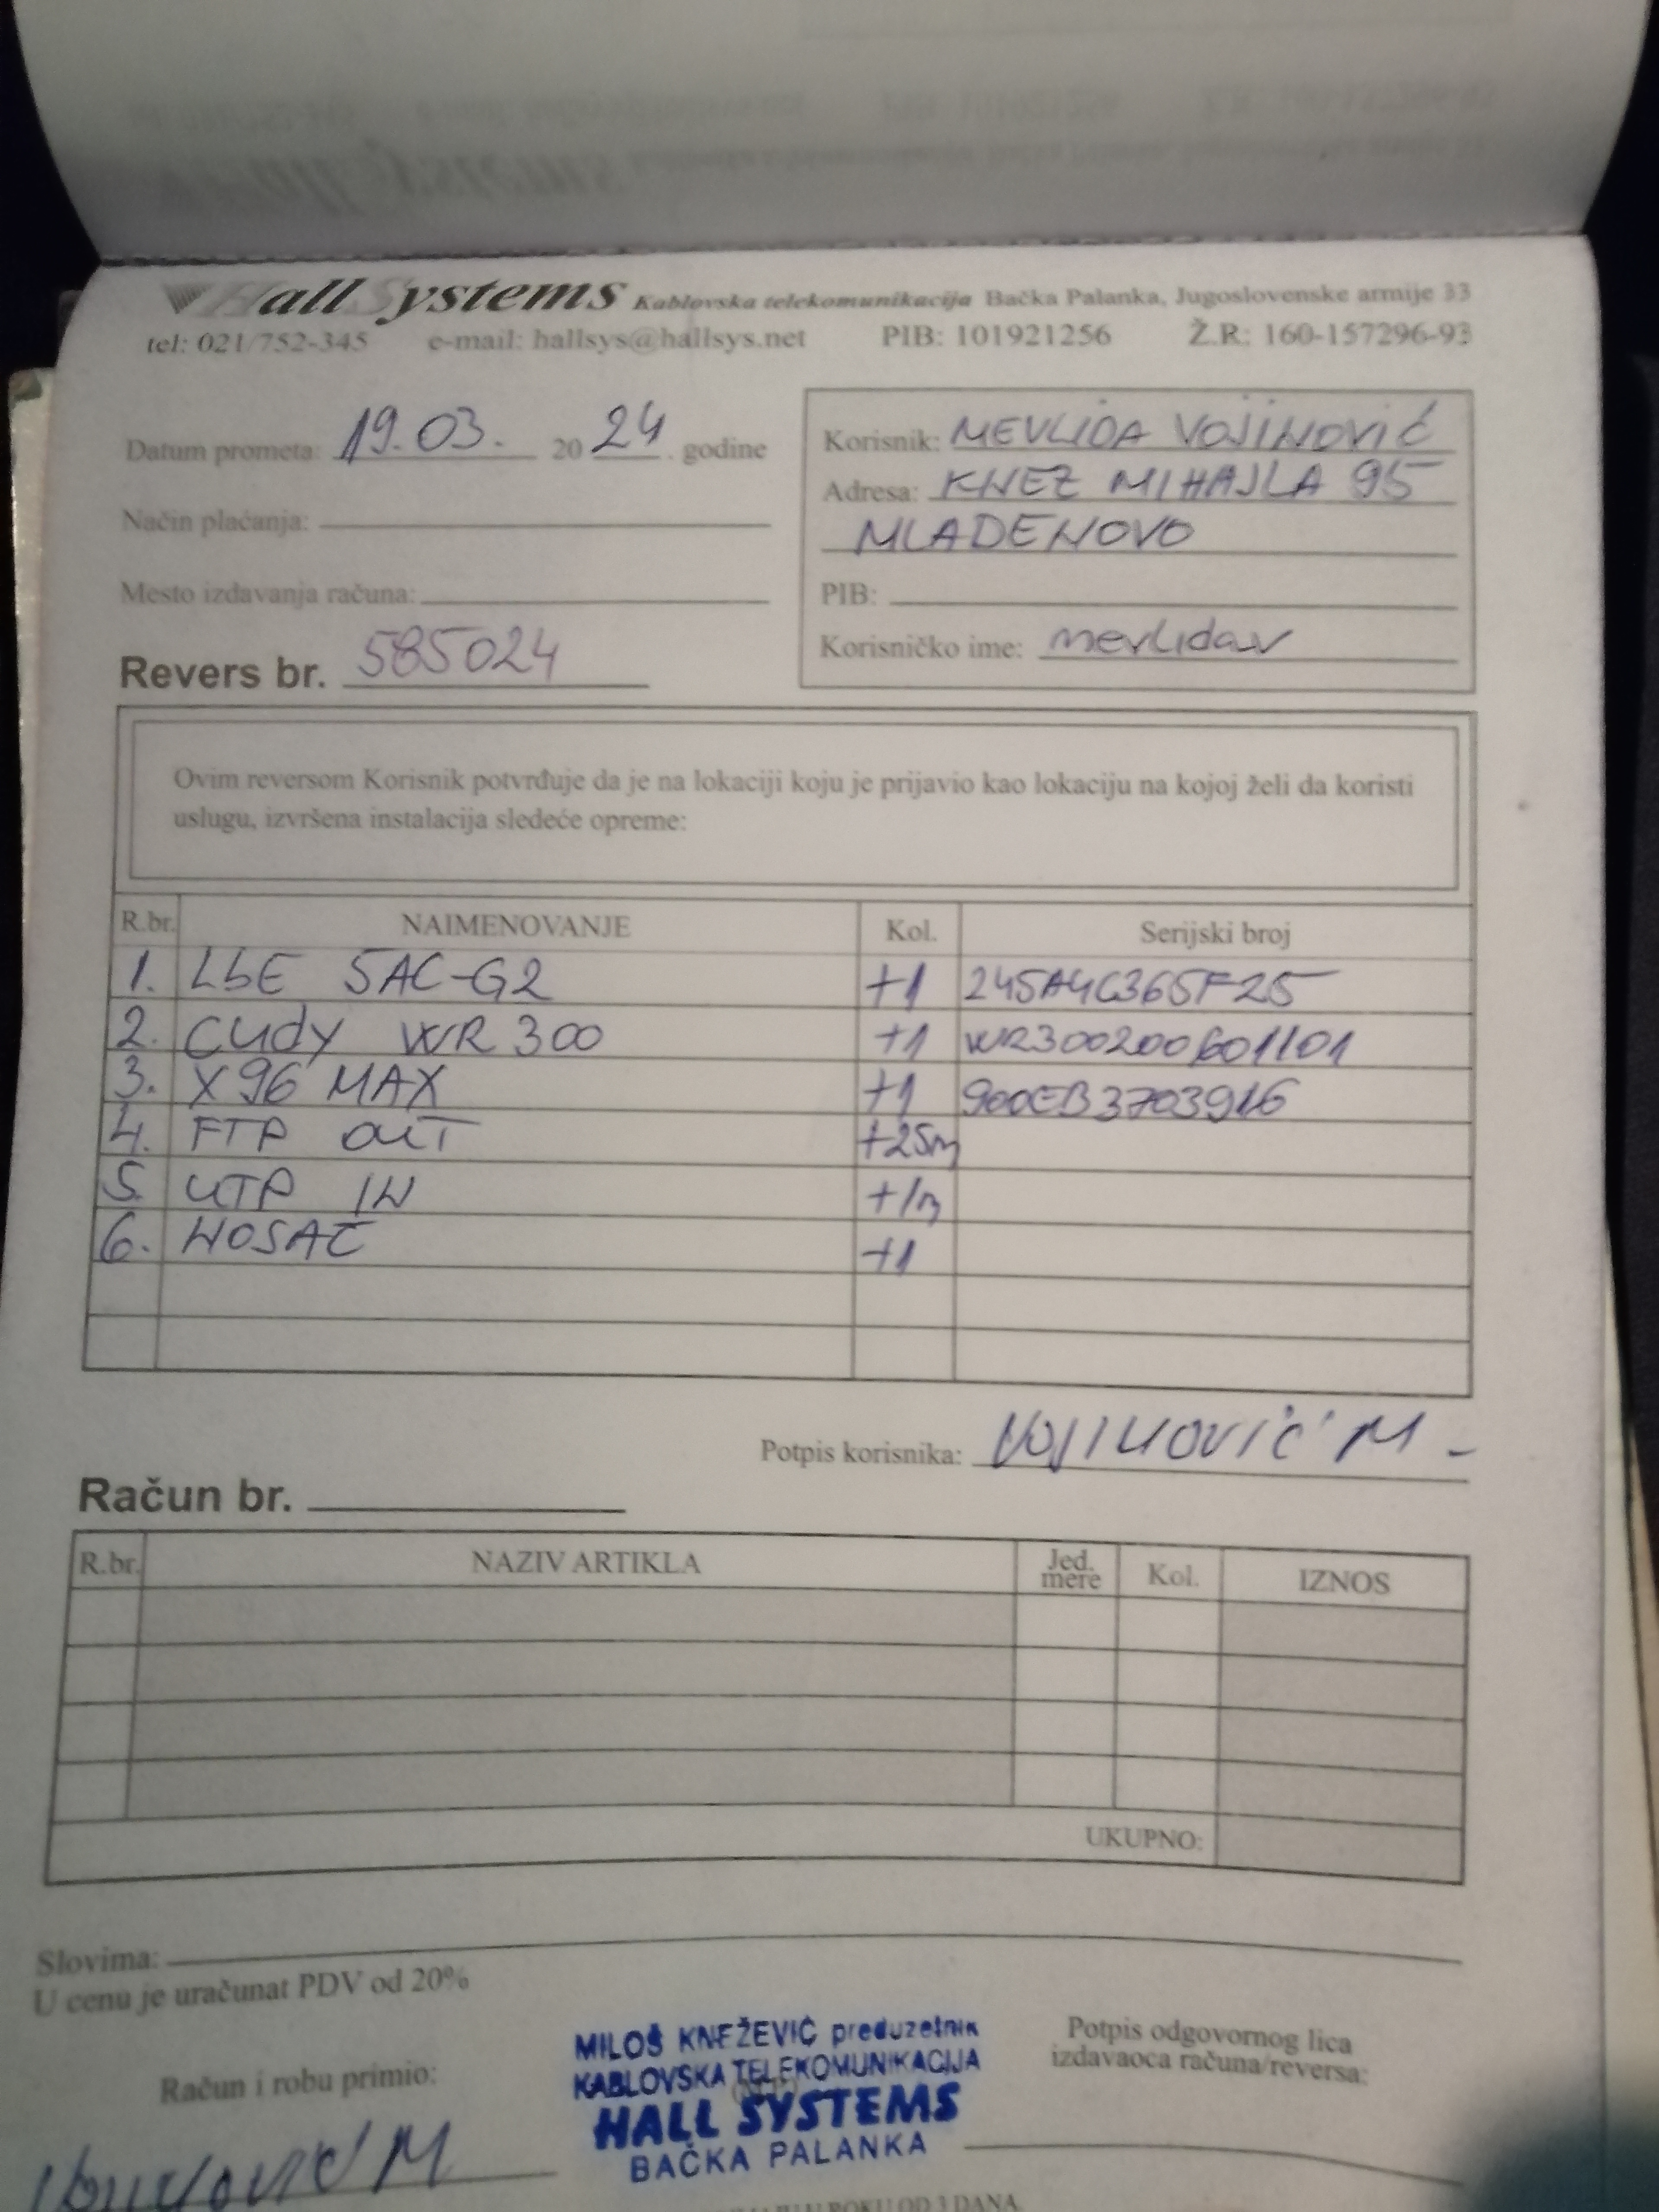 Hall Systems Kablovska telekomunikacija Bačka Palanka, Jugoslovenske armije 33
tel: 021/752-345 e-mail: hallsys@hallsys.net PIB: 101921256 Ž.R: 160-157296-93
Datum prometa: 19.03. 2024. godine
Način plaćanja:
Mesto izdavanja računa:
Revers br. 585024
Korisnik: MEVLIDA VOJINOVIĆ
Adresa: KNEZ MIHAJLA 95
MLADENOVO
PIB:
Korisničko ime: mevlidav
Ovim reversom Korisnik potvrđuje da je na lokaciji koju je prijavio kao lokaciju na kojoj želi da koristi
uslugu, izvršena instalacija sledeće opreme:
R.br. NAIMENOVANJE Kol. Serijski broj
1. LbE 5AC-G2 +1 245A4C365F25
2. Cudy WR 300 +1 WR300200601101
3. X96 MAX +1 900EB3703916
4. FTP OUT +25m
5. UTP IN +1m
6. NOSAČ +1
Potpis korisnika: Vojinović M -
Račun br.
R.br. NAZIV ARTIKLA Jed. mere Kol. IZNOS
UKUPNO:
Slovima:
U cenu je uračunat PDV od 20%
Račun i robu primio:
Vojinović M
MILOŠ KNEŽEVIĆ preduzetnik
KABLOVSKA TELEKOMUNIKACIJA
HALL SYSTEMS
BAČKA PALANKA
Potpis odgovornog lica
izdavaoca računa/reversa:
U ROKU OD 3 DANA.